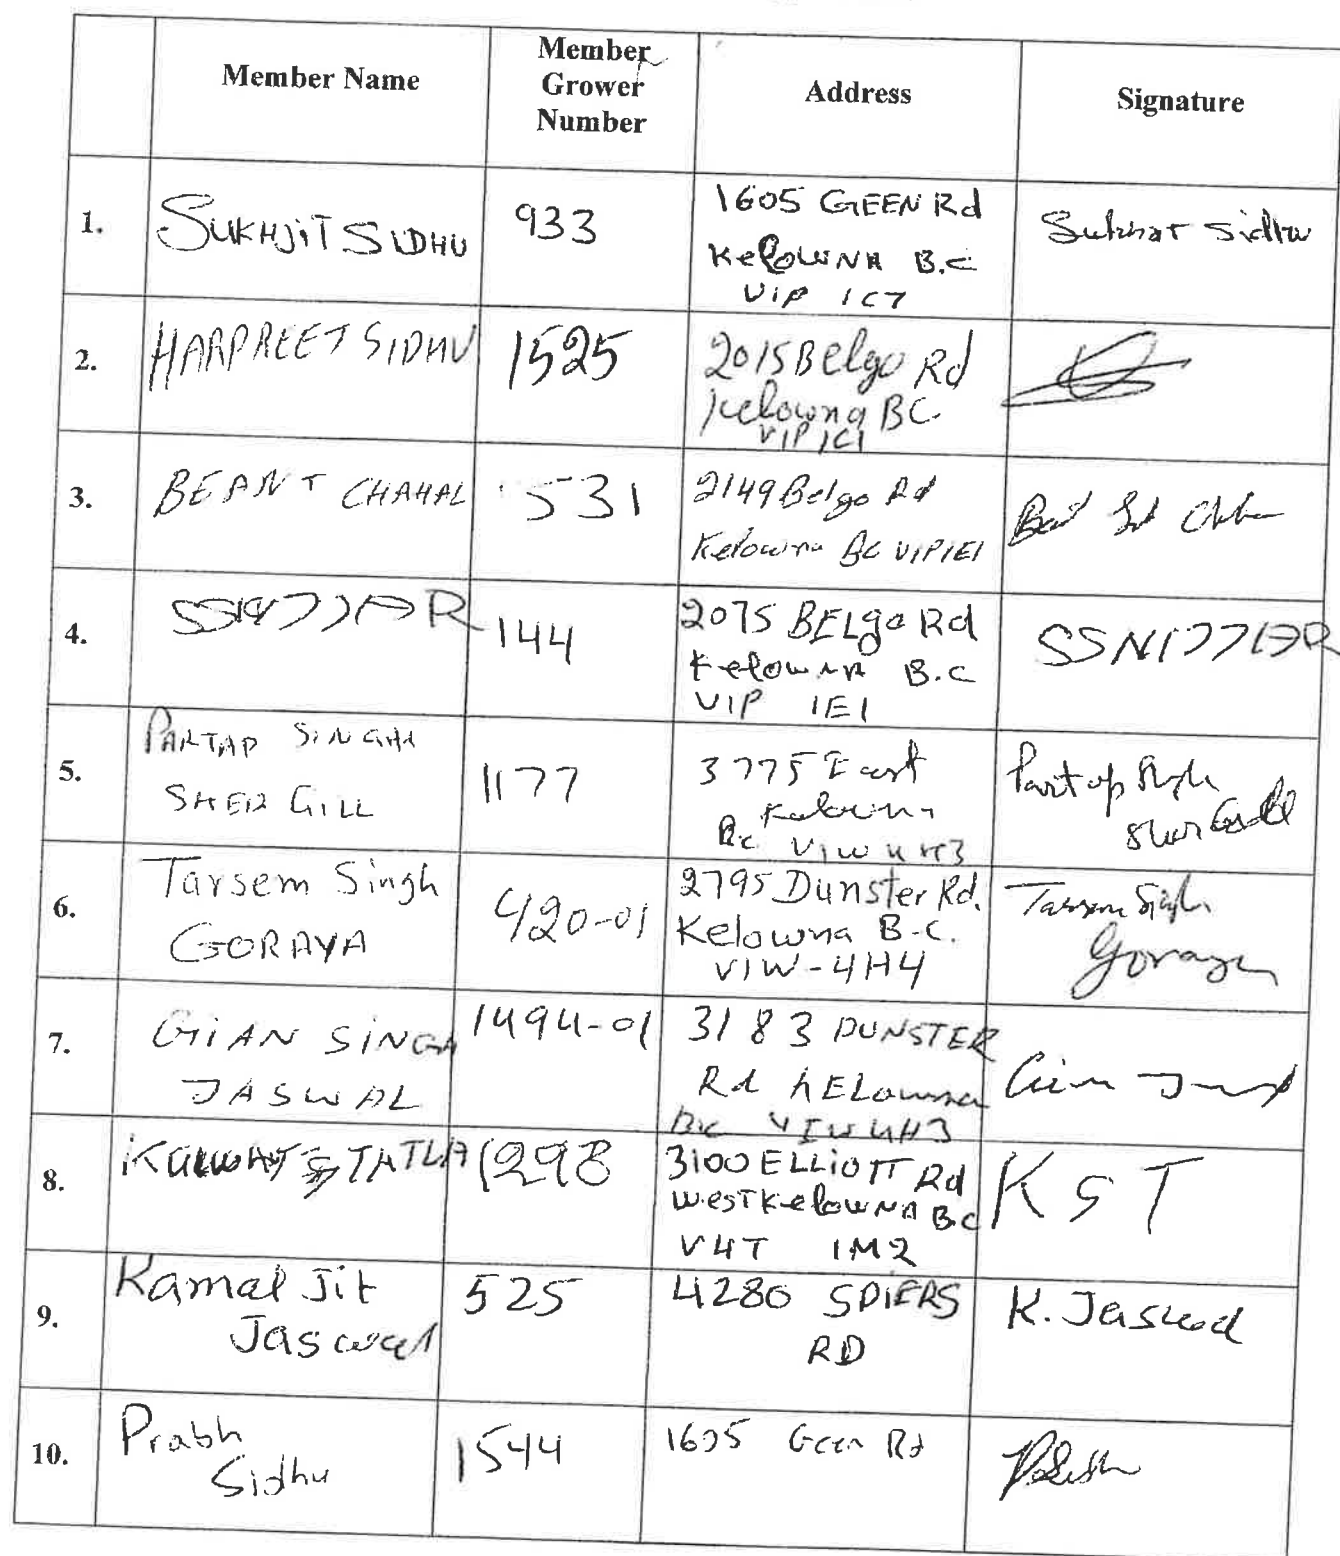 Member Name
Member Grower Number
Address
Signature
1.
SUKHJIT SIDHU
933
1605 GEEN Rd
Kelowna B.C
V1P 1C7
Sukhjit Sidhu
2.
HARPREET SIDHU
1525
2015 Belgo Rd
Kelowna BC
V1P 1C1
3.
BEANT CHAHAL
531
2149 Belgo Rd
Kelowna BC V1P1E1
4.
144
2075 BELgo Rd
Kelowna B.C
V1P 1E1
5.
PARTAP SINGH
SHER GILL
1177
3775 East
Kelowna
BC V1W 4H3
Partap Singh
Sher Gill
6.
Tarsem Singh
GORAYA
420-01
2795 Dunster Rd.
Kelowna B.C.
V1W-4H4
Tarsem Singh
Goraya
7.
GIAN SINGH
JASWAL
1494-01
3183 DUNSTER
Rd KELowna
BC V1W4H3
8.
TATLA
1298
3100 ELLIOTT Rd
West Kelowna BC
V4T 1M2
KST
9.
Kamal Jit
Jaswal
525
4280 SPIERS
RD
K. Jaswal
10.
Prabh
Sidhu
1544
1605 Geen Rd